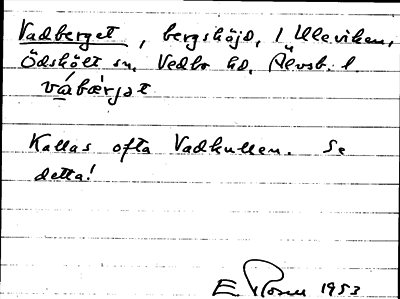 Vadberget, bergshöjd, i Ulleviken,
Ödskölt sn, Vedbo hd, Älvsb. l.
vábærjət
Kallas ofta Vadkullen. Se
detta!
E Rosen 1953